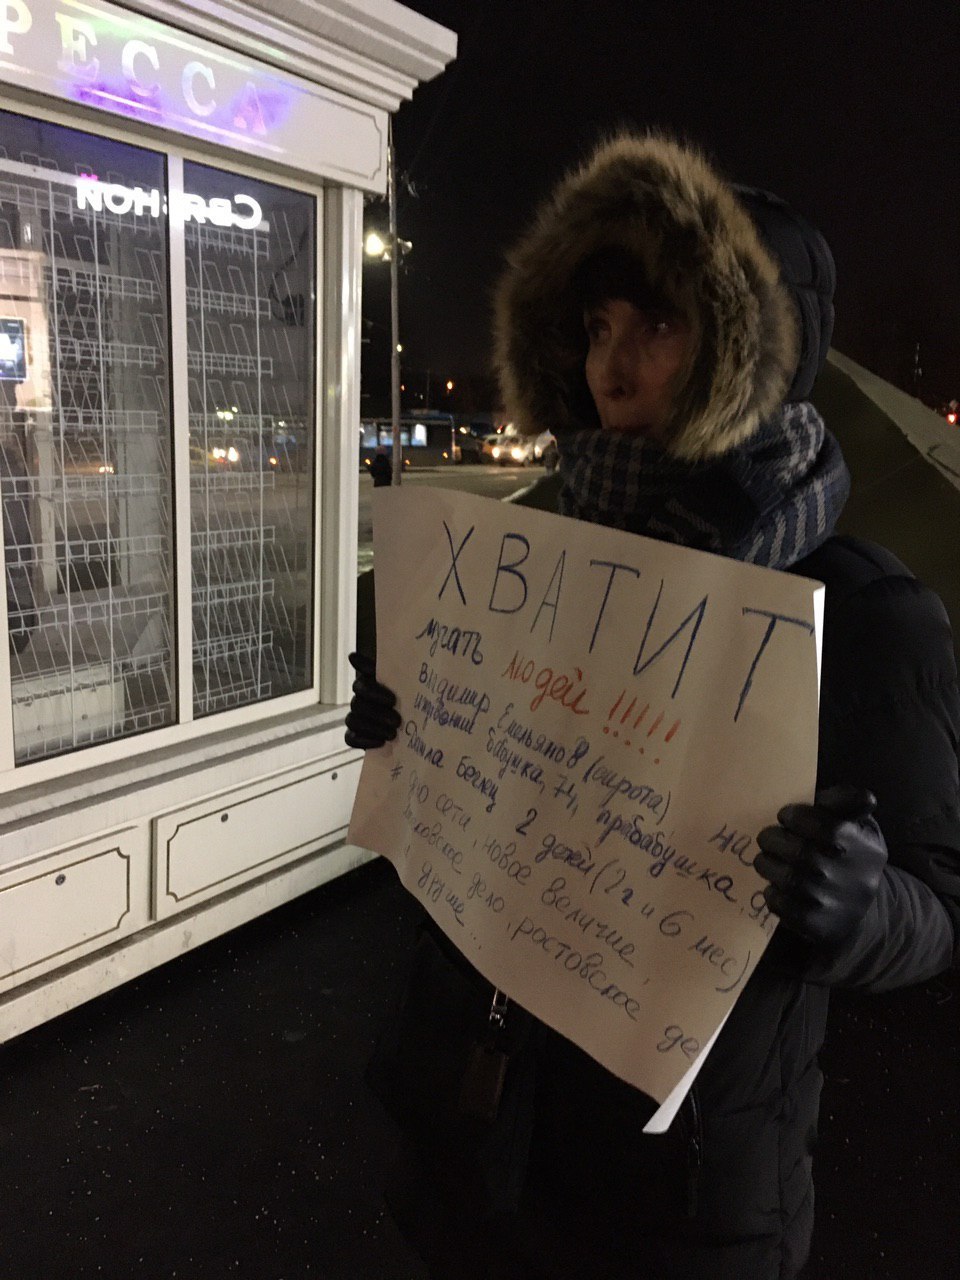 РЕССА
Связной
ХВАТИТ
мучать людей !!!!!
Владимир Емельянов (сирота) на
иждивении бабушка, 74, прабабушка,
Данила Беглец 2 детей (2 г и 6 мес)
# дело сети, новое величие,
московское дело, ростовское де
и другие...